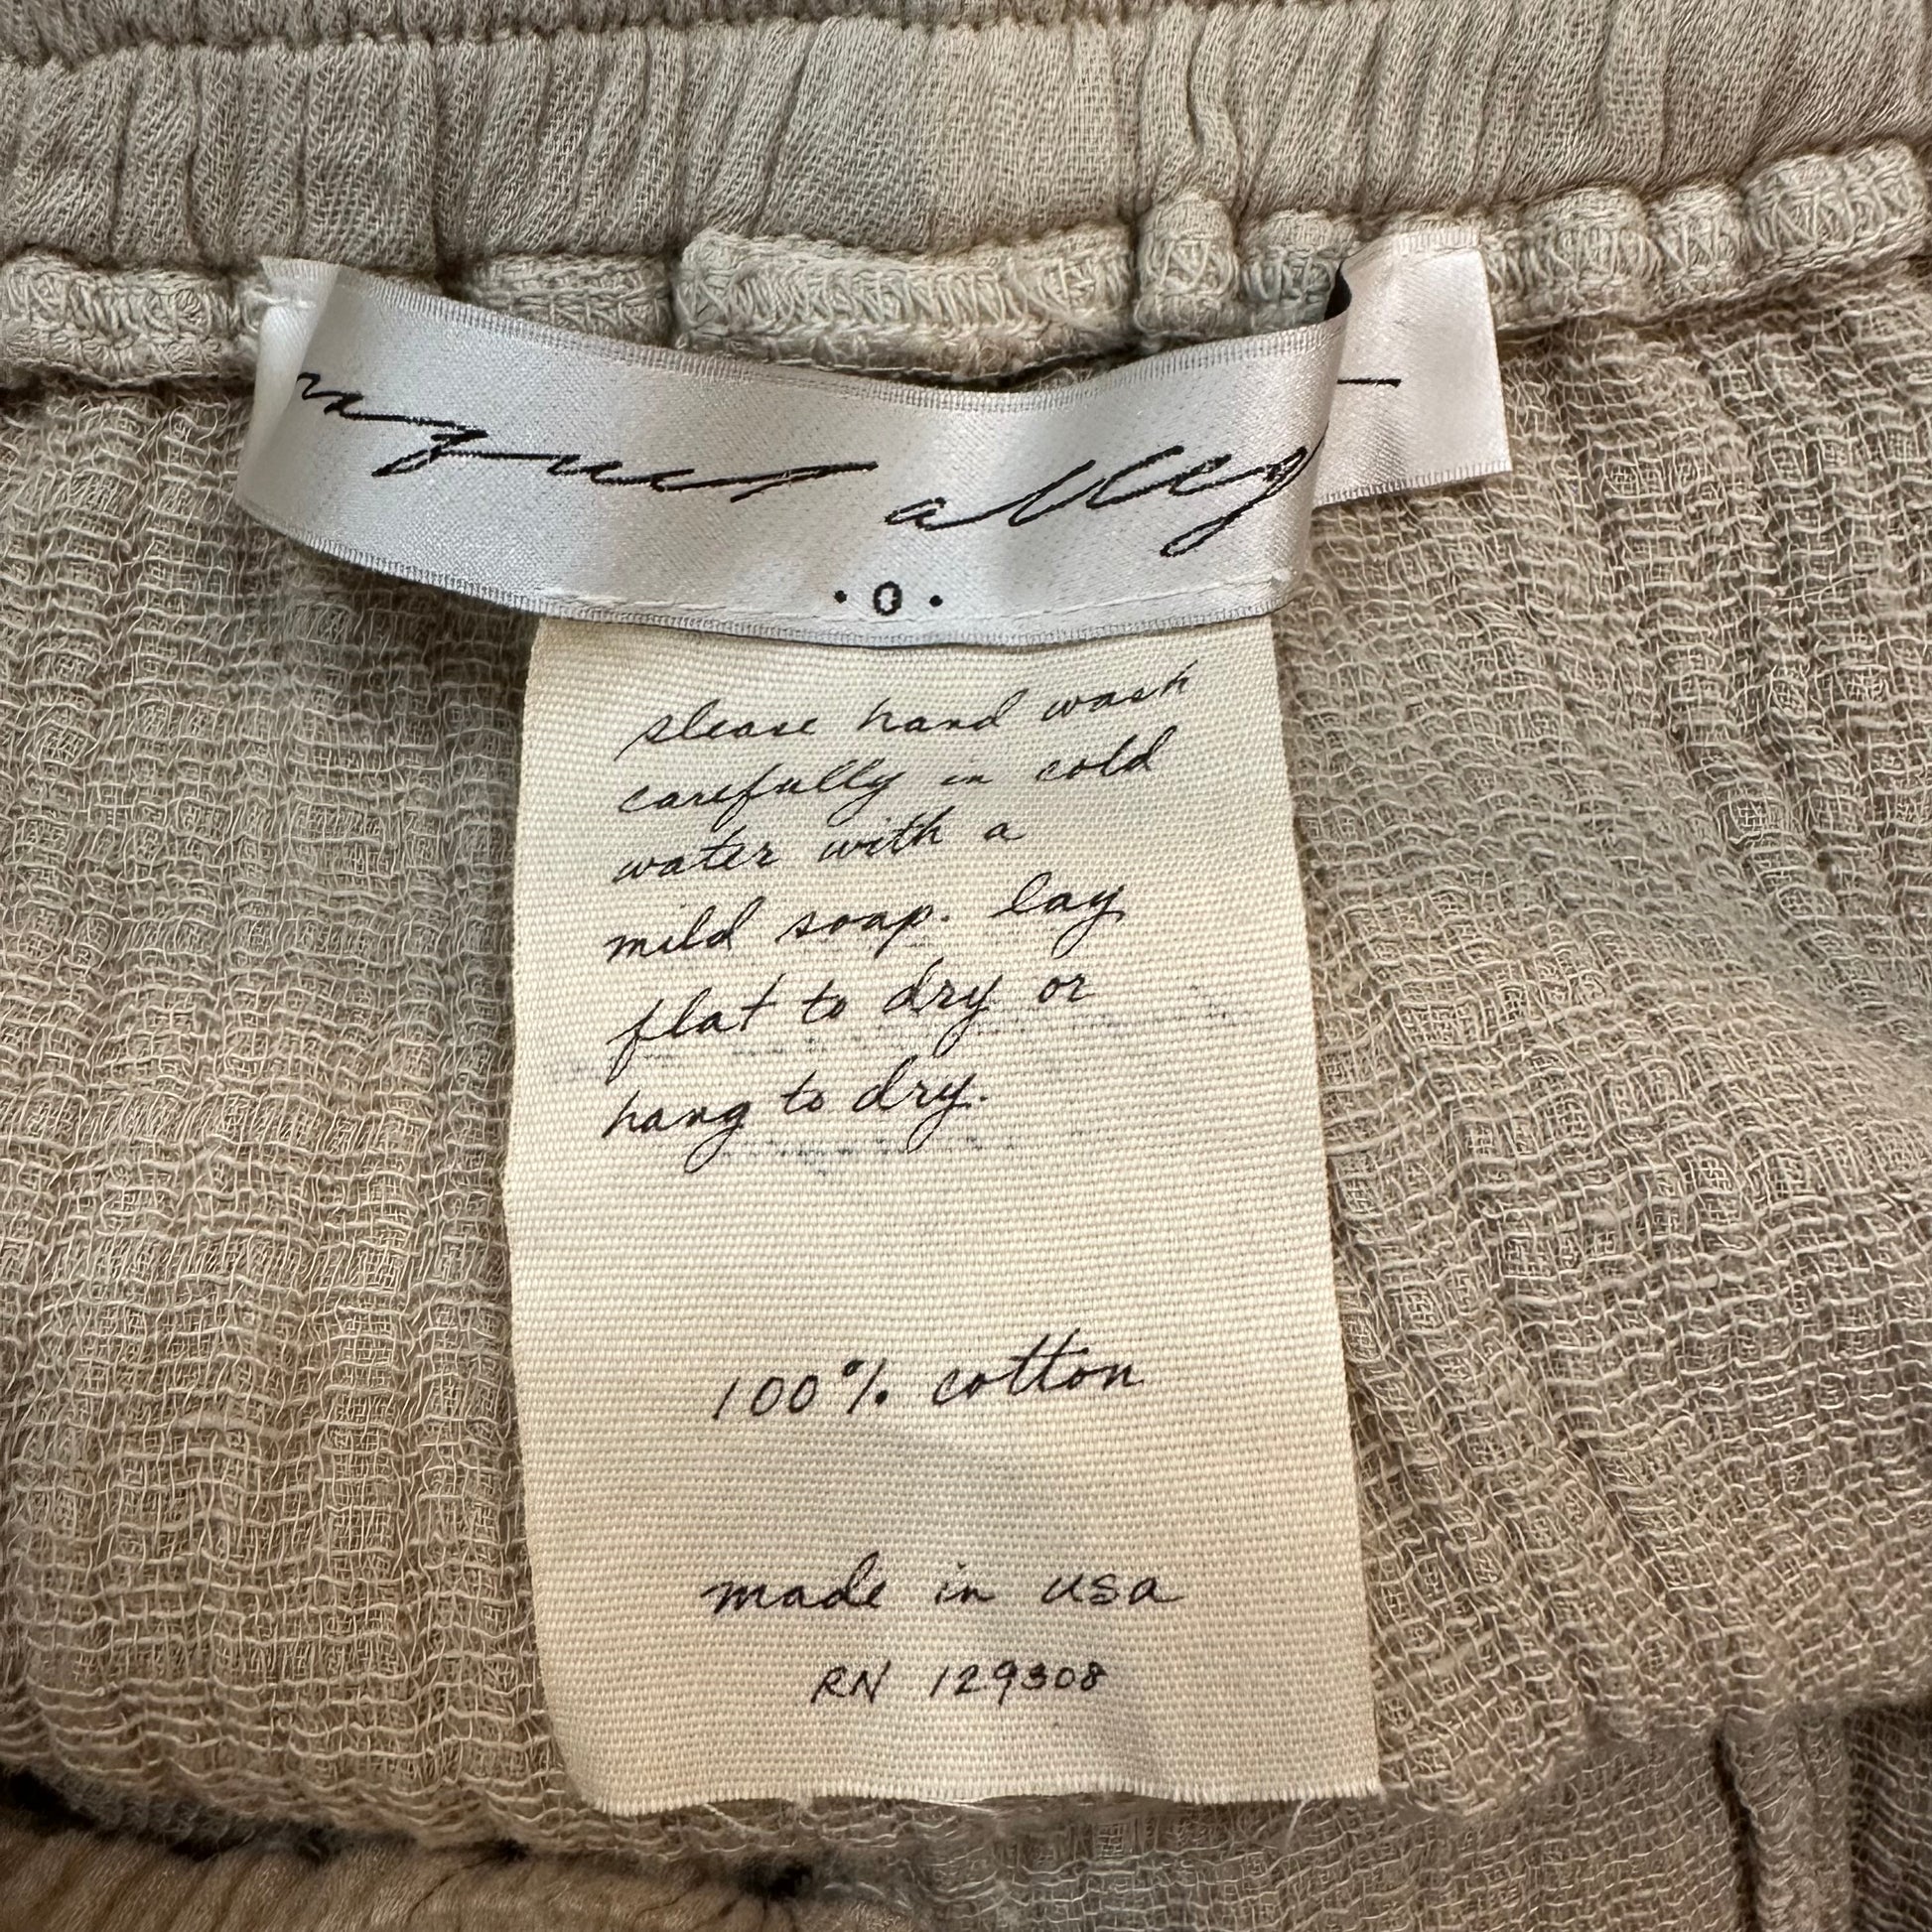 alley
· 0 ·
please hand wash
carefully in cold
water with a
mild soap. lay
flat to dry or
hang to dry.
100% cotton
made in usa
RN 129308